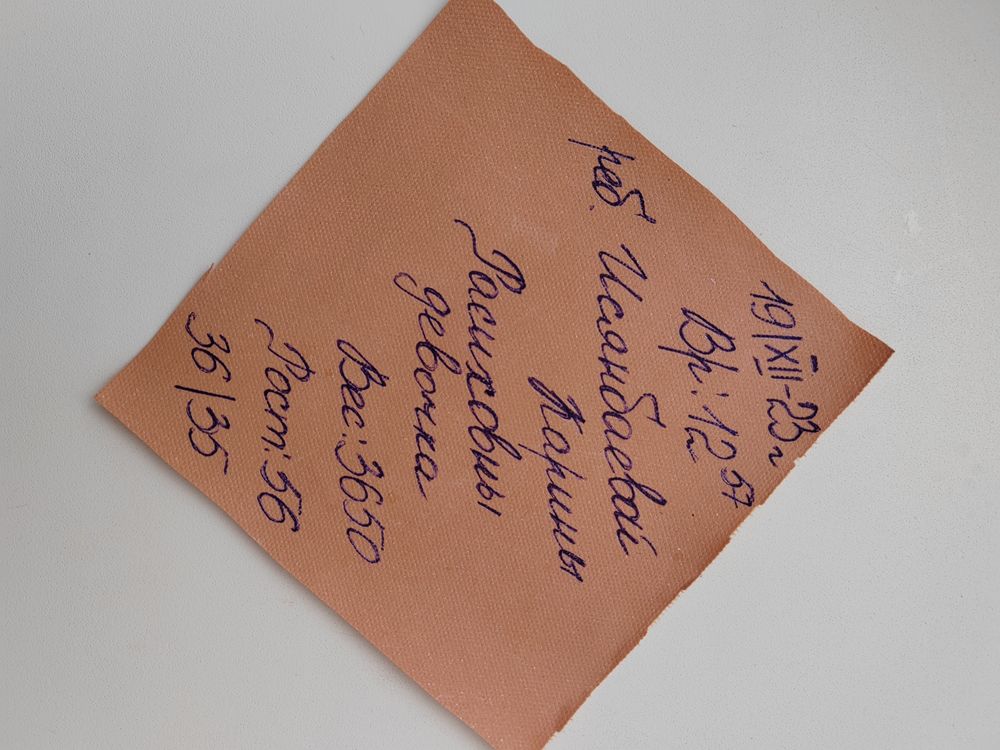 19/XII-23г
Вр: 12 57
реб. Исланбаевой
Карины
Расиховны
девочка
Вес: 3650
Рост: 56
36/35